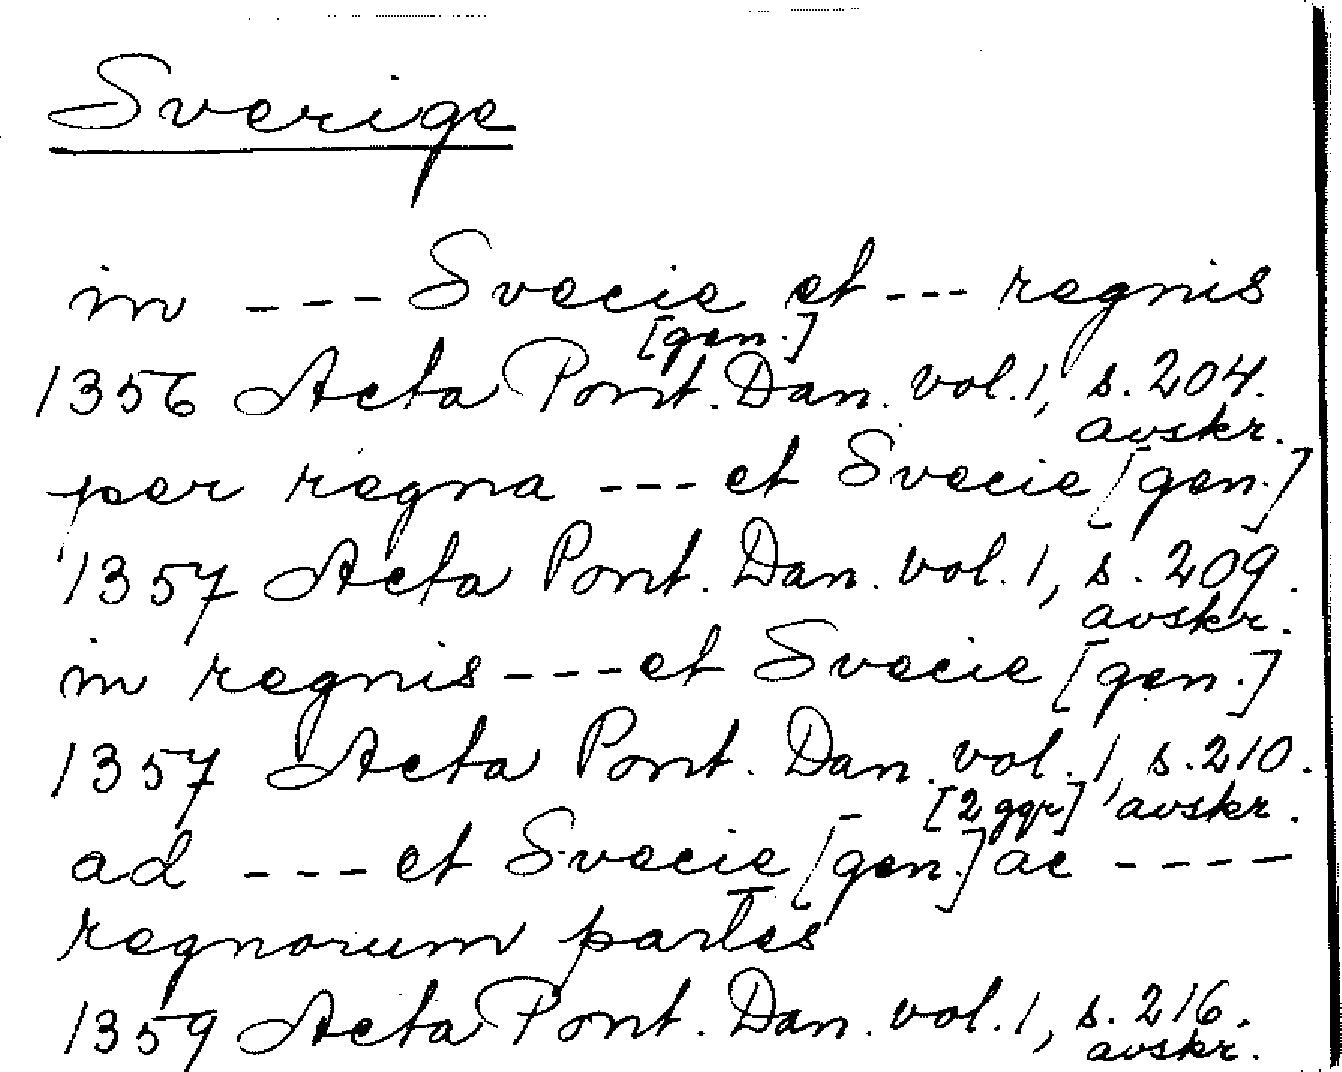 Sverige
in --- Svecie et --- regnis
[gen.]
1356 Acta Pont. Dan. vol. 1, s. 204.
avskr.
per regna --- et Svecie [gen.]
1357 Acta Pont. Dan. vol. 1, s. 209.
avskr.
in regnis --- et Svecie [gen.]
1357 Acta Pont. Dan. vol. 1, s. 210.
[2 ggr] avskr.
ad --- et Svecie [gen.] ac ----
regnorum partes
1359 Acta Pont. Dan. vol. 1, s. 216.
avskr.